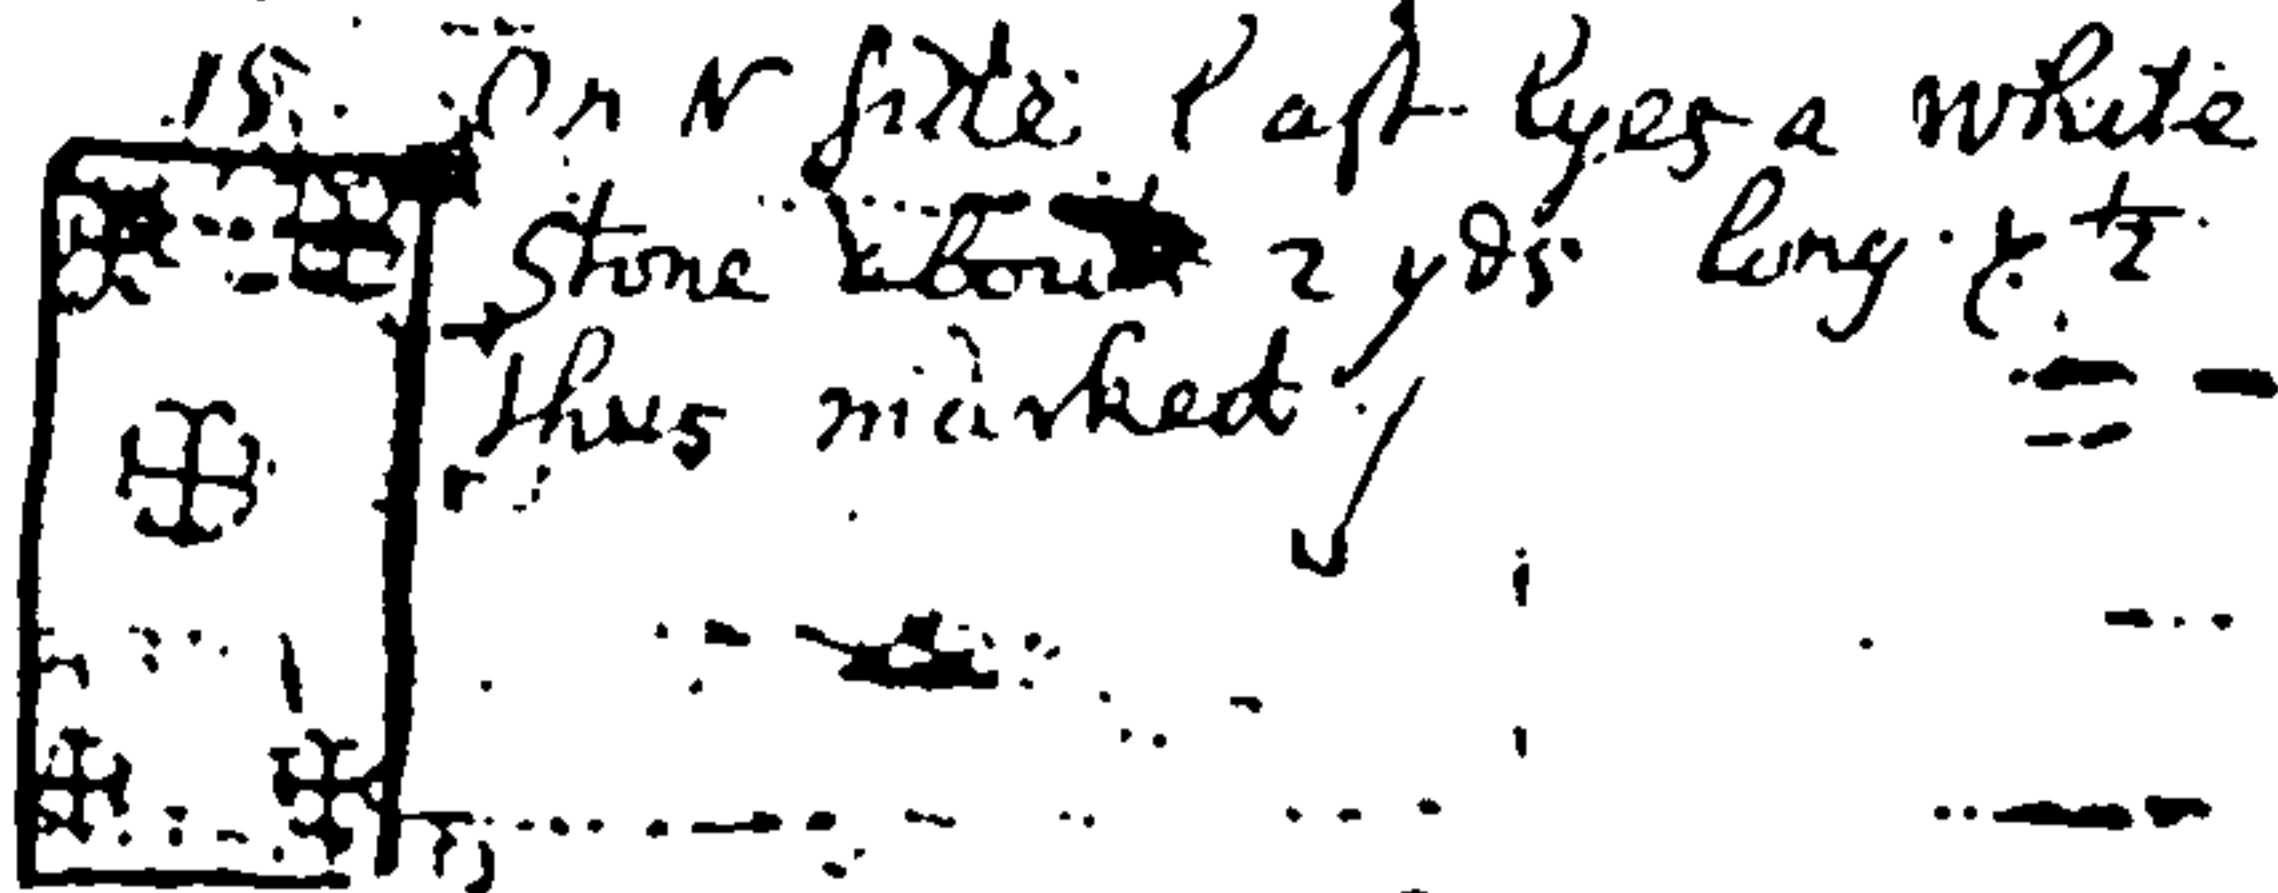 15. On N side last lyes a white
Stone about 2 yds long & ½
thus marked